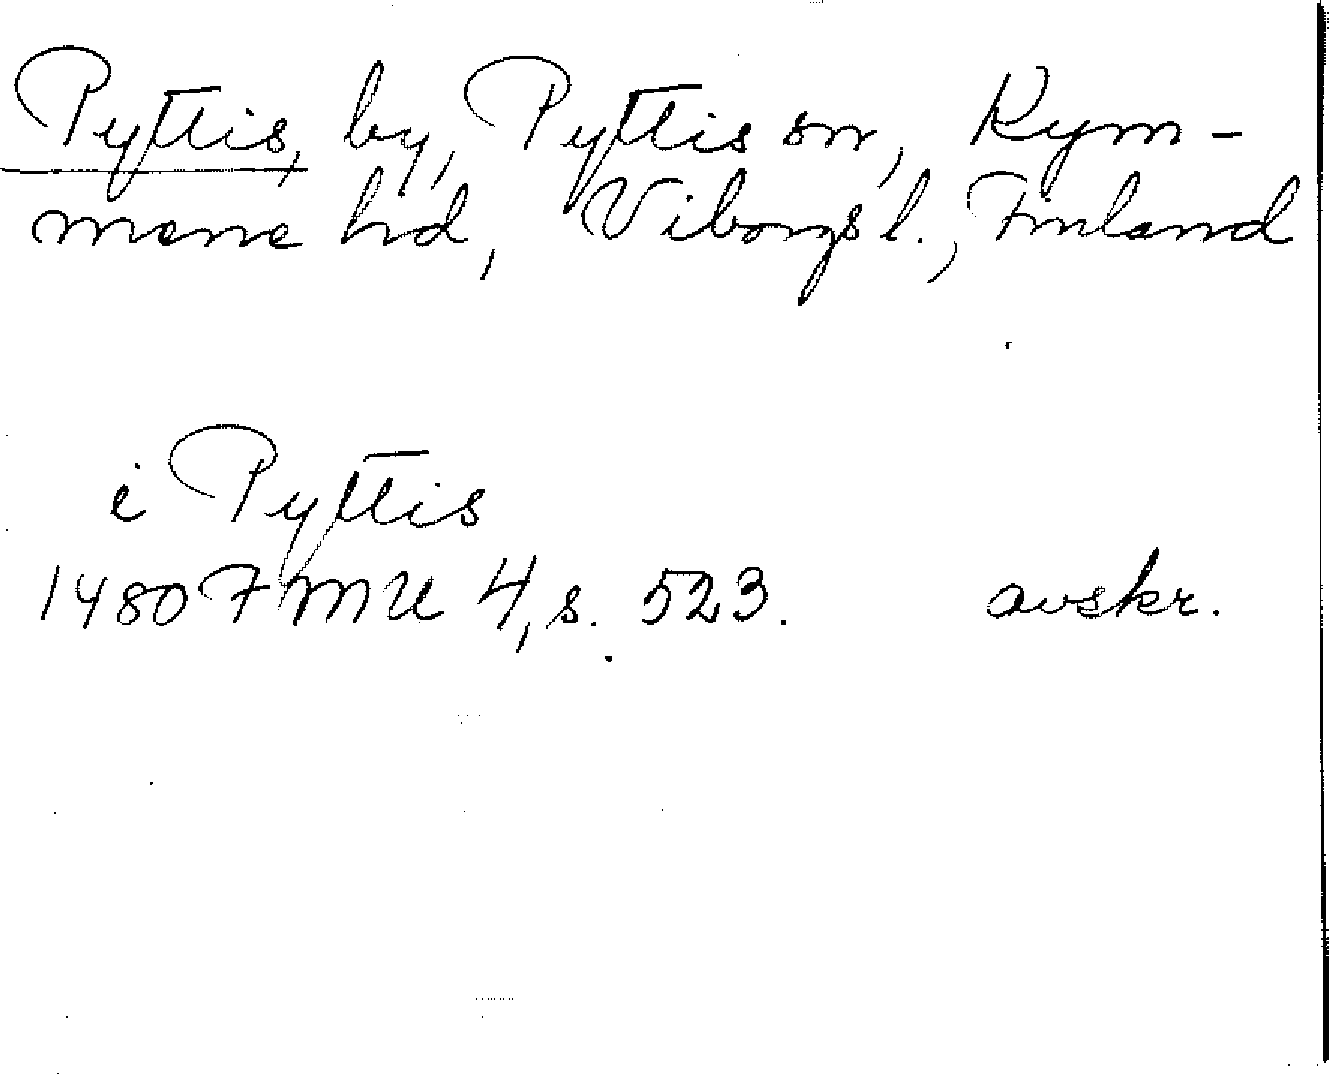 Pyttis, by, Pyttis sn, Kym-
mene hd, Viborgs l., Finland
i Pyttis
1480 FMU 4, s. 523. avskr.